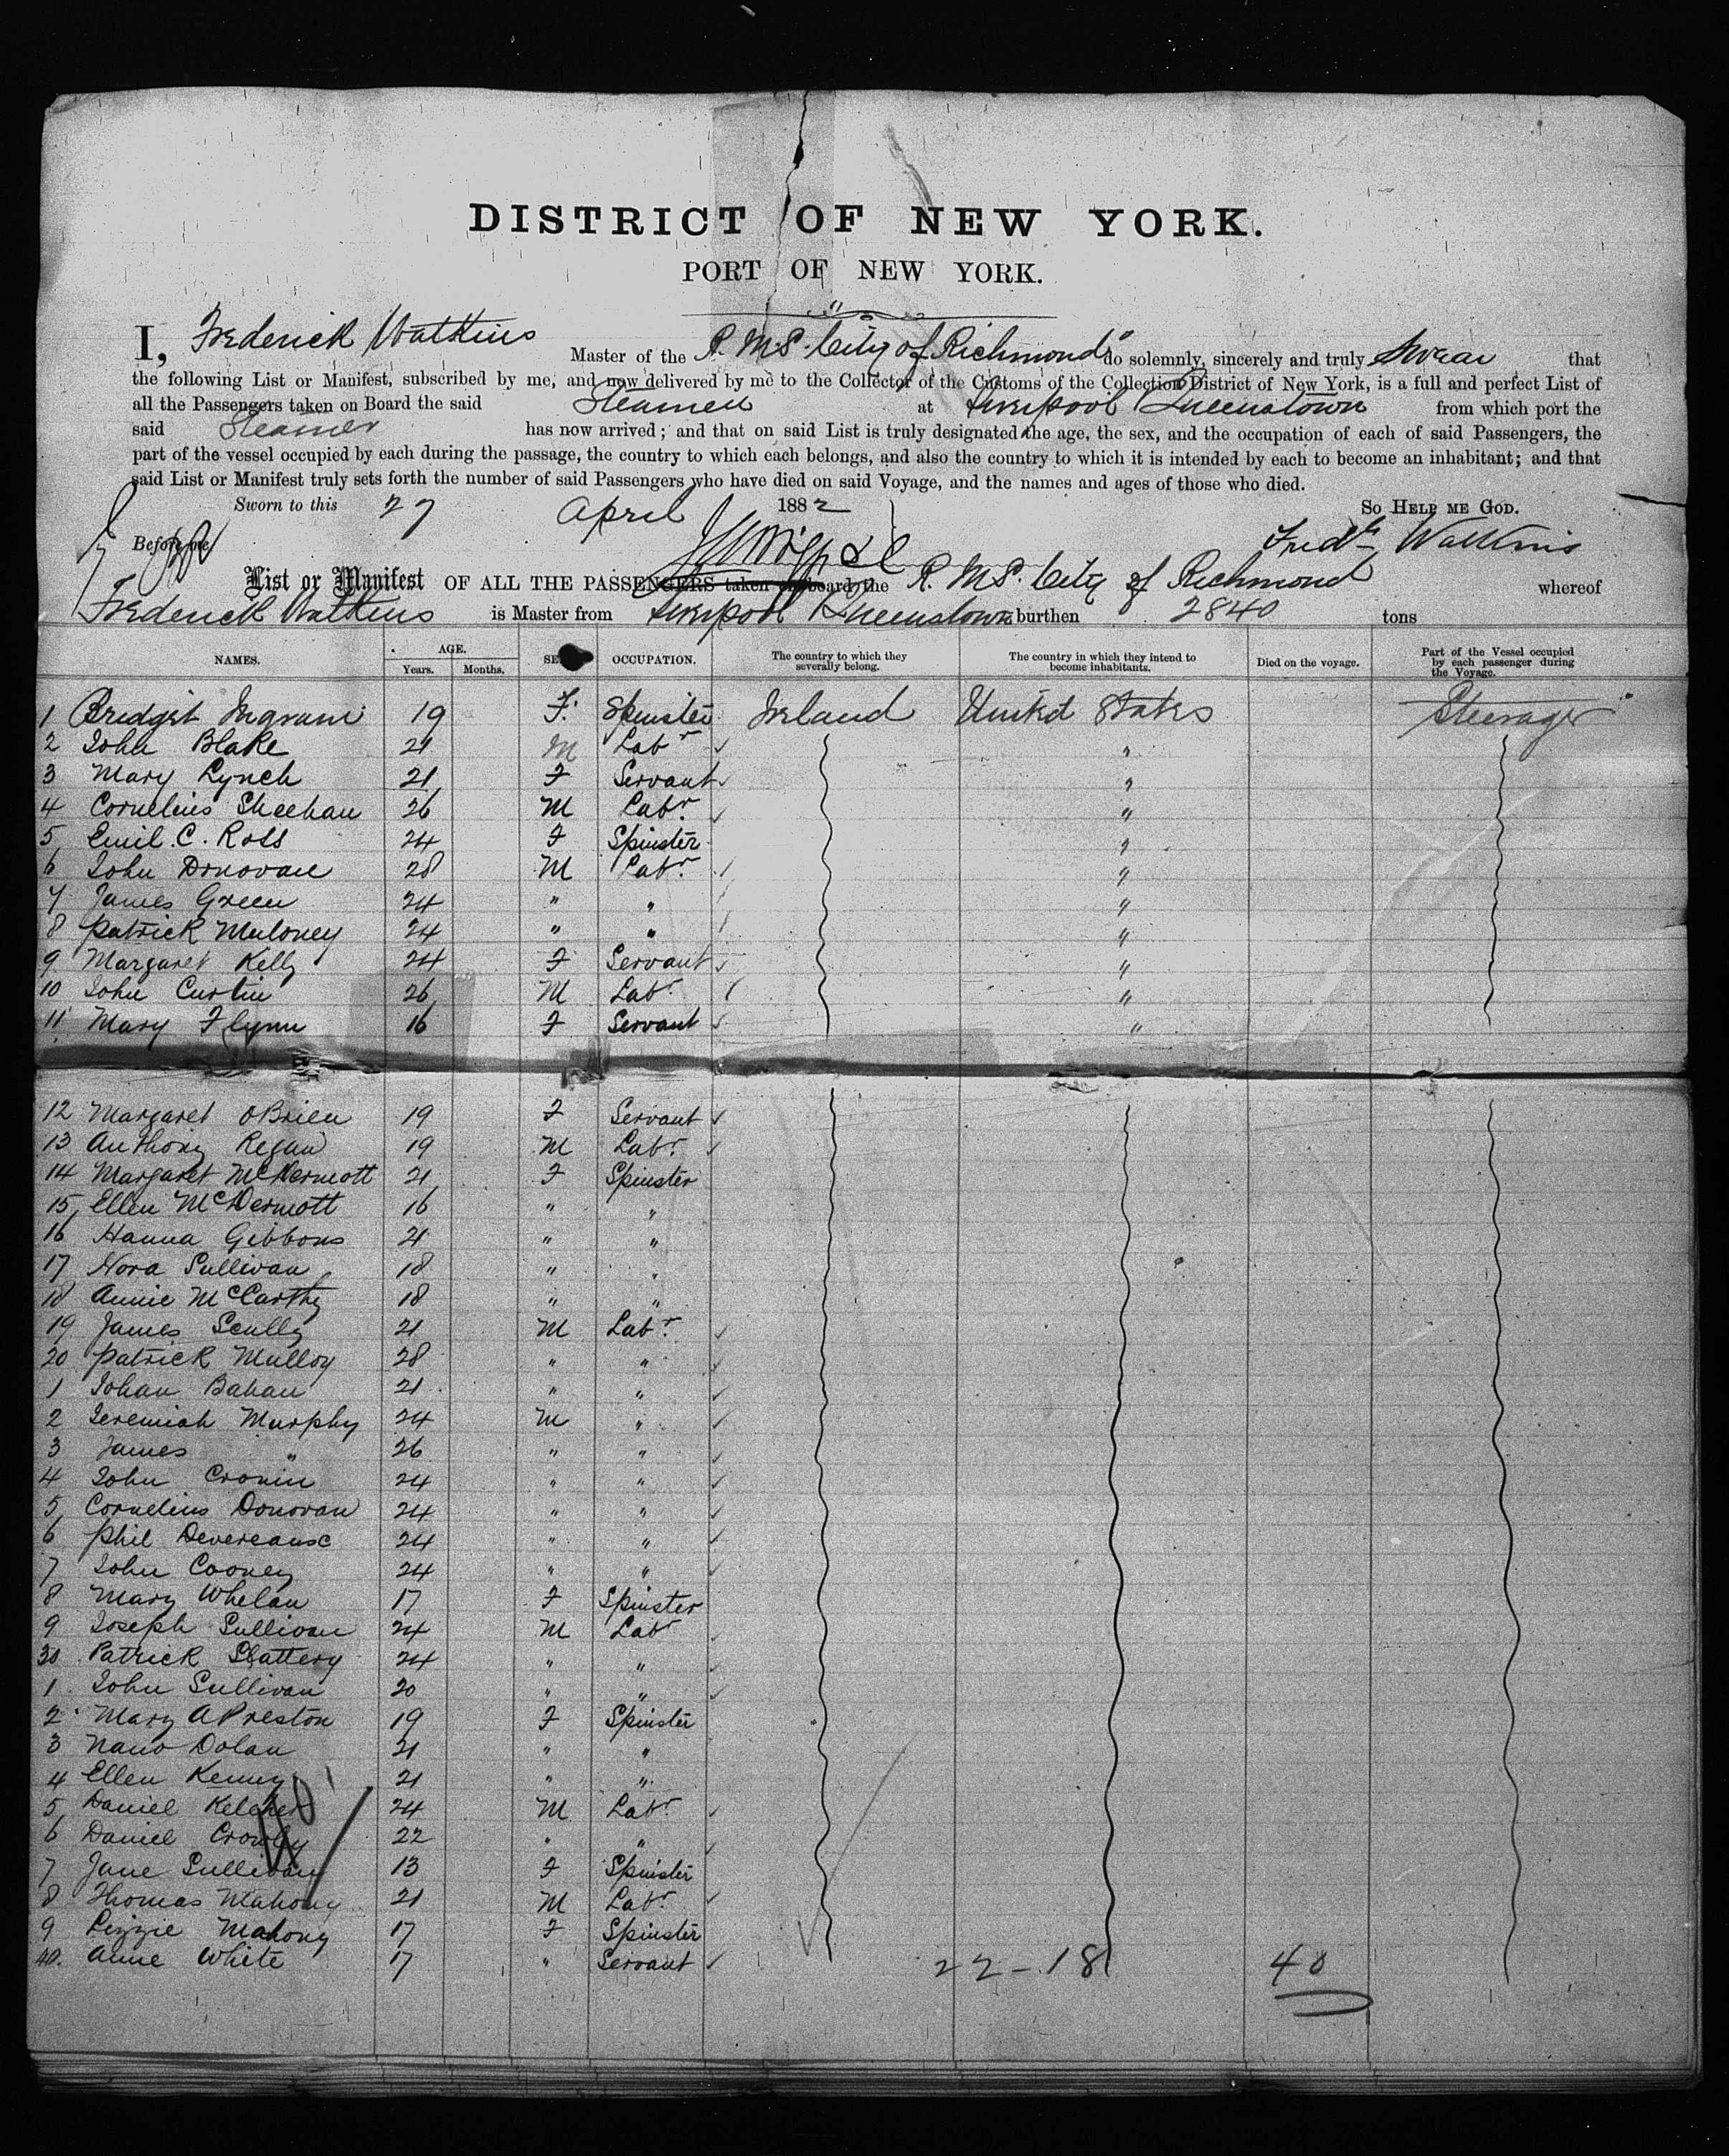 DISTRICT OF NEW YORK.
PORT OF NEW YORK.
I, Frederick Watkins Master of the R. M. S. "City of Richmond" do solemnly, sincerely and truly swear that
the following List or Manifest, subscribed by me, and now delivered by me to the Collector of the Customs of the Collection District of New York, is a full and perfect List of
all the Passengers taken on Board the said Steamer at Liverpool Queenstown from which port the
said Steamer has now arrived; and that on said List is truly designated the age, the sex, and the occupation of each of said Passengers, the
part of the vessel occupied by each during the passage, the country to which each belongs, and also the country to which it is intended by each to become an inhabitant; and that
said List or Manifest truly sets forth the number of said Passengers who have died on said Voyage, and the names and ages of those who died.
Sworn to this 27 April 1882 So HELP ME GOD.
Before me Fredk Watkins
List or Manifest OF ALL THE PASSENGERS taken on board the R. M. S. City of Richmond whereof
Frederick Watkins is Master from Liverpool Queenstown burthen 2840 tons
NAMES. AGE. Years. Months. SEX OCCUPATION. The country to which they severally belong. The country in which they intend to become inhabitants. Died on the voyage. Part of the Vessel occupied by each passenger during the Voyage.
1 Bridget Ingram 19 F. Spinster Ireland United States Steerage
2 John Blake 21 M Labr "
3 Mary Lynch 21 F Servant "
4 Cornelius Sheehan 26 M Labr "
5 Emil. C. Ross 24 F Spinster "
6 John Donovan 28 M Labr "
7 James Green 24 " " "
8 Patrick Muloney 24 " " "
9 Margaret Kelly 24 F Servant "
10 John Curtin 26 M Labr "
11 Mary Flynn 16 F Servant "
12 Margaret OBrien 19 F Servant
13 Anthony Regan 19 M Labr
14 Margaret McDermott 21 F Spinster
15 Ellen McDermott 16 " "
16 Hanna Gibbons 21 " "
17 Nora Sullivan 18 " "
18 Annie McCarthy 18 " "
19 James Scully 21 M Labr
20 Patrick Mulloy 28 " "
1 Johan Bahan 21 " "
2 Jeremiah Murphy 24 M "
3 James " 26 " "
4 John Cronin 24 " "
5 Cornelius Donovan 24 " "
6 Phil Devereaux 24 " "
7 John Cooney 24 " "
8 Mary Whelan 17 F Spinster
9 Joseph Sullivan 24 M Labr
30 Patrick Slattery 24 " "
1 John Sullivan 20 " "
2 Mary A Preston 19 F Spinster
3 Nano Dolan 21 " "
4 Ellen Kenny 21 " "
5 Daniel Keleher 24 M Labr
6 Daniel Crowley 22 " "
7 Jane Sullivan 13 F Spinster
8 Thomas Mahony 21 M Labr
9 Lizzie Mahony 17 F Spinster
40. Anne White 17 " Servant
22 - 18 40